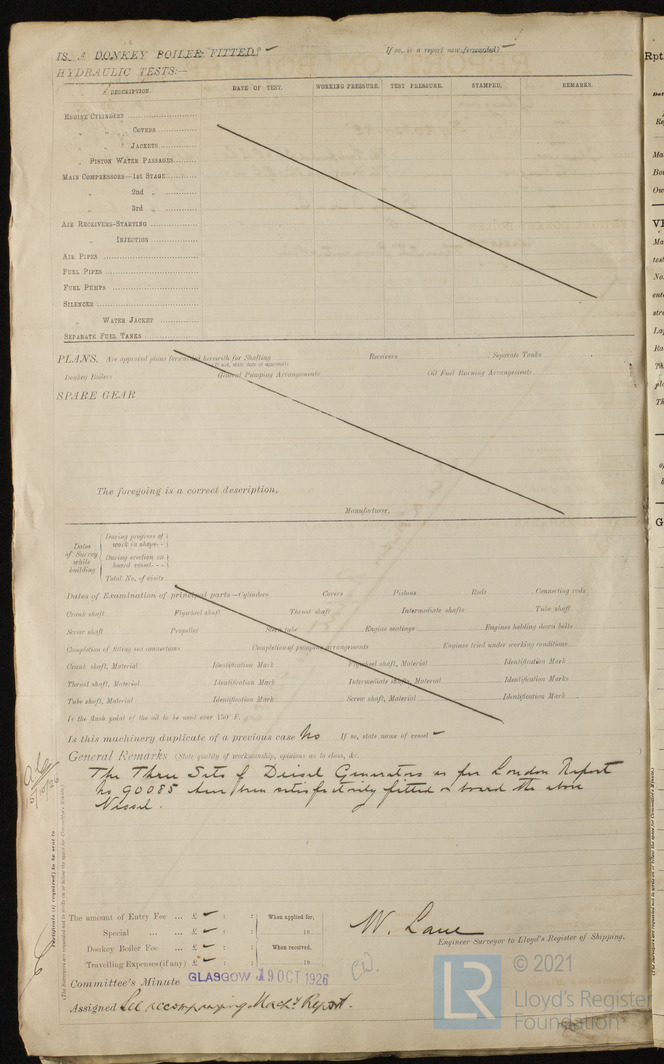 IS A DONKEY BOILER FITTED? If so, is a report now forwarded?
HYDRAULIC TESTS:—
DESCRIPTION. DATE OF TEST. WORKING PRESSURE. TEST PRESSURE. STAMPED. REMARKS.
ENGINE CYLINDERS
" " COVERS
" " JACKETS
" PISTON WATER PASSAGES
MAIN COMPRESSORS—1st STAGE
" 2nd "
" 3rd "
AIR RECEIVERS—STARTING
" INJECTION
AIR PIPES
FUEL PIPES
FUEL PUMPS
SILENCER
" WATER JACKET
SEPARATE FUEL TANKS
PLANS. Are approved plans forwarded herewith for Shafting Receivers Separate Tanks
(If not, state date of approval)
Donkey Boilers General Pumping Arrangements Oil Fuel Burning Arrangements
SPARE GEAR
The foregoing is a correct description,
Manufacturer.
Dates of Survey while building
During progress of work in shops - -
During erection on board vessel - - -
Total No. of visits
Dates of Examination of principal parts—Cylinders Covers Pistons Rods Connecting rods
Crank shaft Flywheel shaft Thrust shaft Intermediate shafts Tube shaft
Screw shaft Propeller Stern tube Engine seatings Engines holding down bolts
Completion of fitting sea connections Completion of pumping arrangements Engines tried under working conditions
Crank shaft, Material Identification Mark Flywheel shaft, Material Identification Mark
Thrust shaft, Material Identification Mark Intermediate shafts, Material Identification Marks
Tube shaft, Material Identification Mark Screw shaft, Material Identification Mark
Is the flash point of the oil to be used over 150° F.
Is this machinery duplicate of a previous case No If so, state name of vessel
General Remarks (State quality of workmanship, opinions as to class, &c.
The Three Sets of Diesel Generators as per London Report
No 90085 have been satisfactorily fitted on board the above
Vessel.
The amount of Entry Fee ... £ : : When applied for,
Special ... ... £ : : 19
Donkey Boiler Fee ... £ : : When received,
Travelling Expenses (if any) £ : : 19
W. Lane
Engineer Surveyor to Lloyd's Register of Shipping.
Committee's Minute GLASGOW 19 OCT 1926
Assigned See accompanying Mach'y Report.
© 2021
LR
Lloyd's Register
Foundation
Rpt.